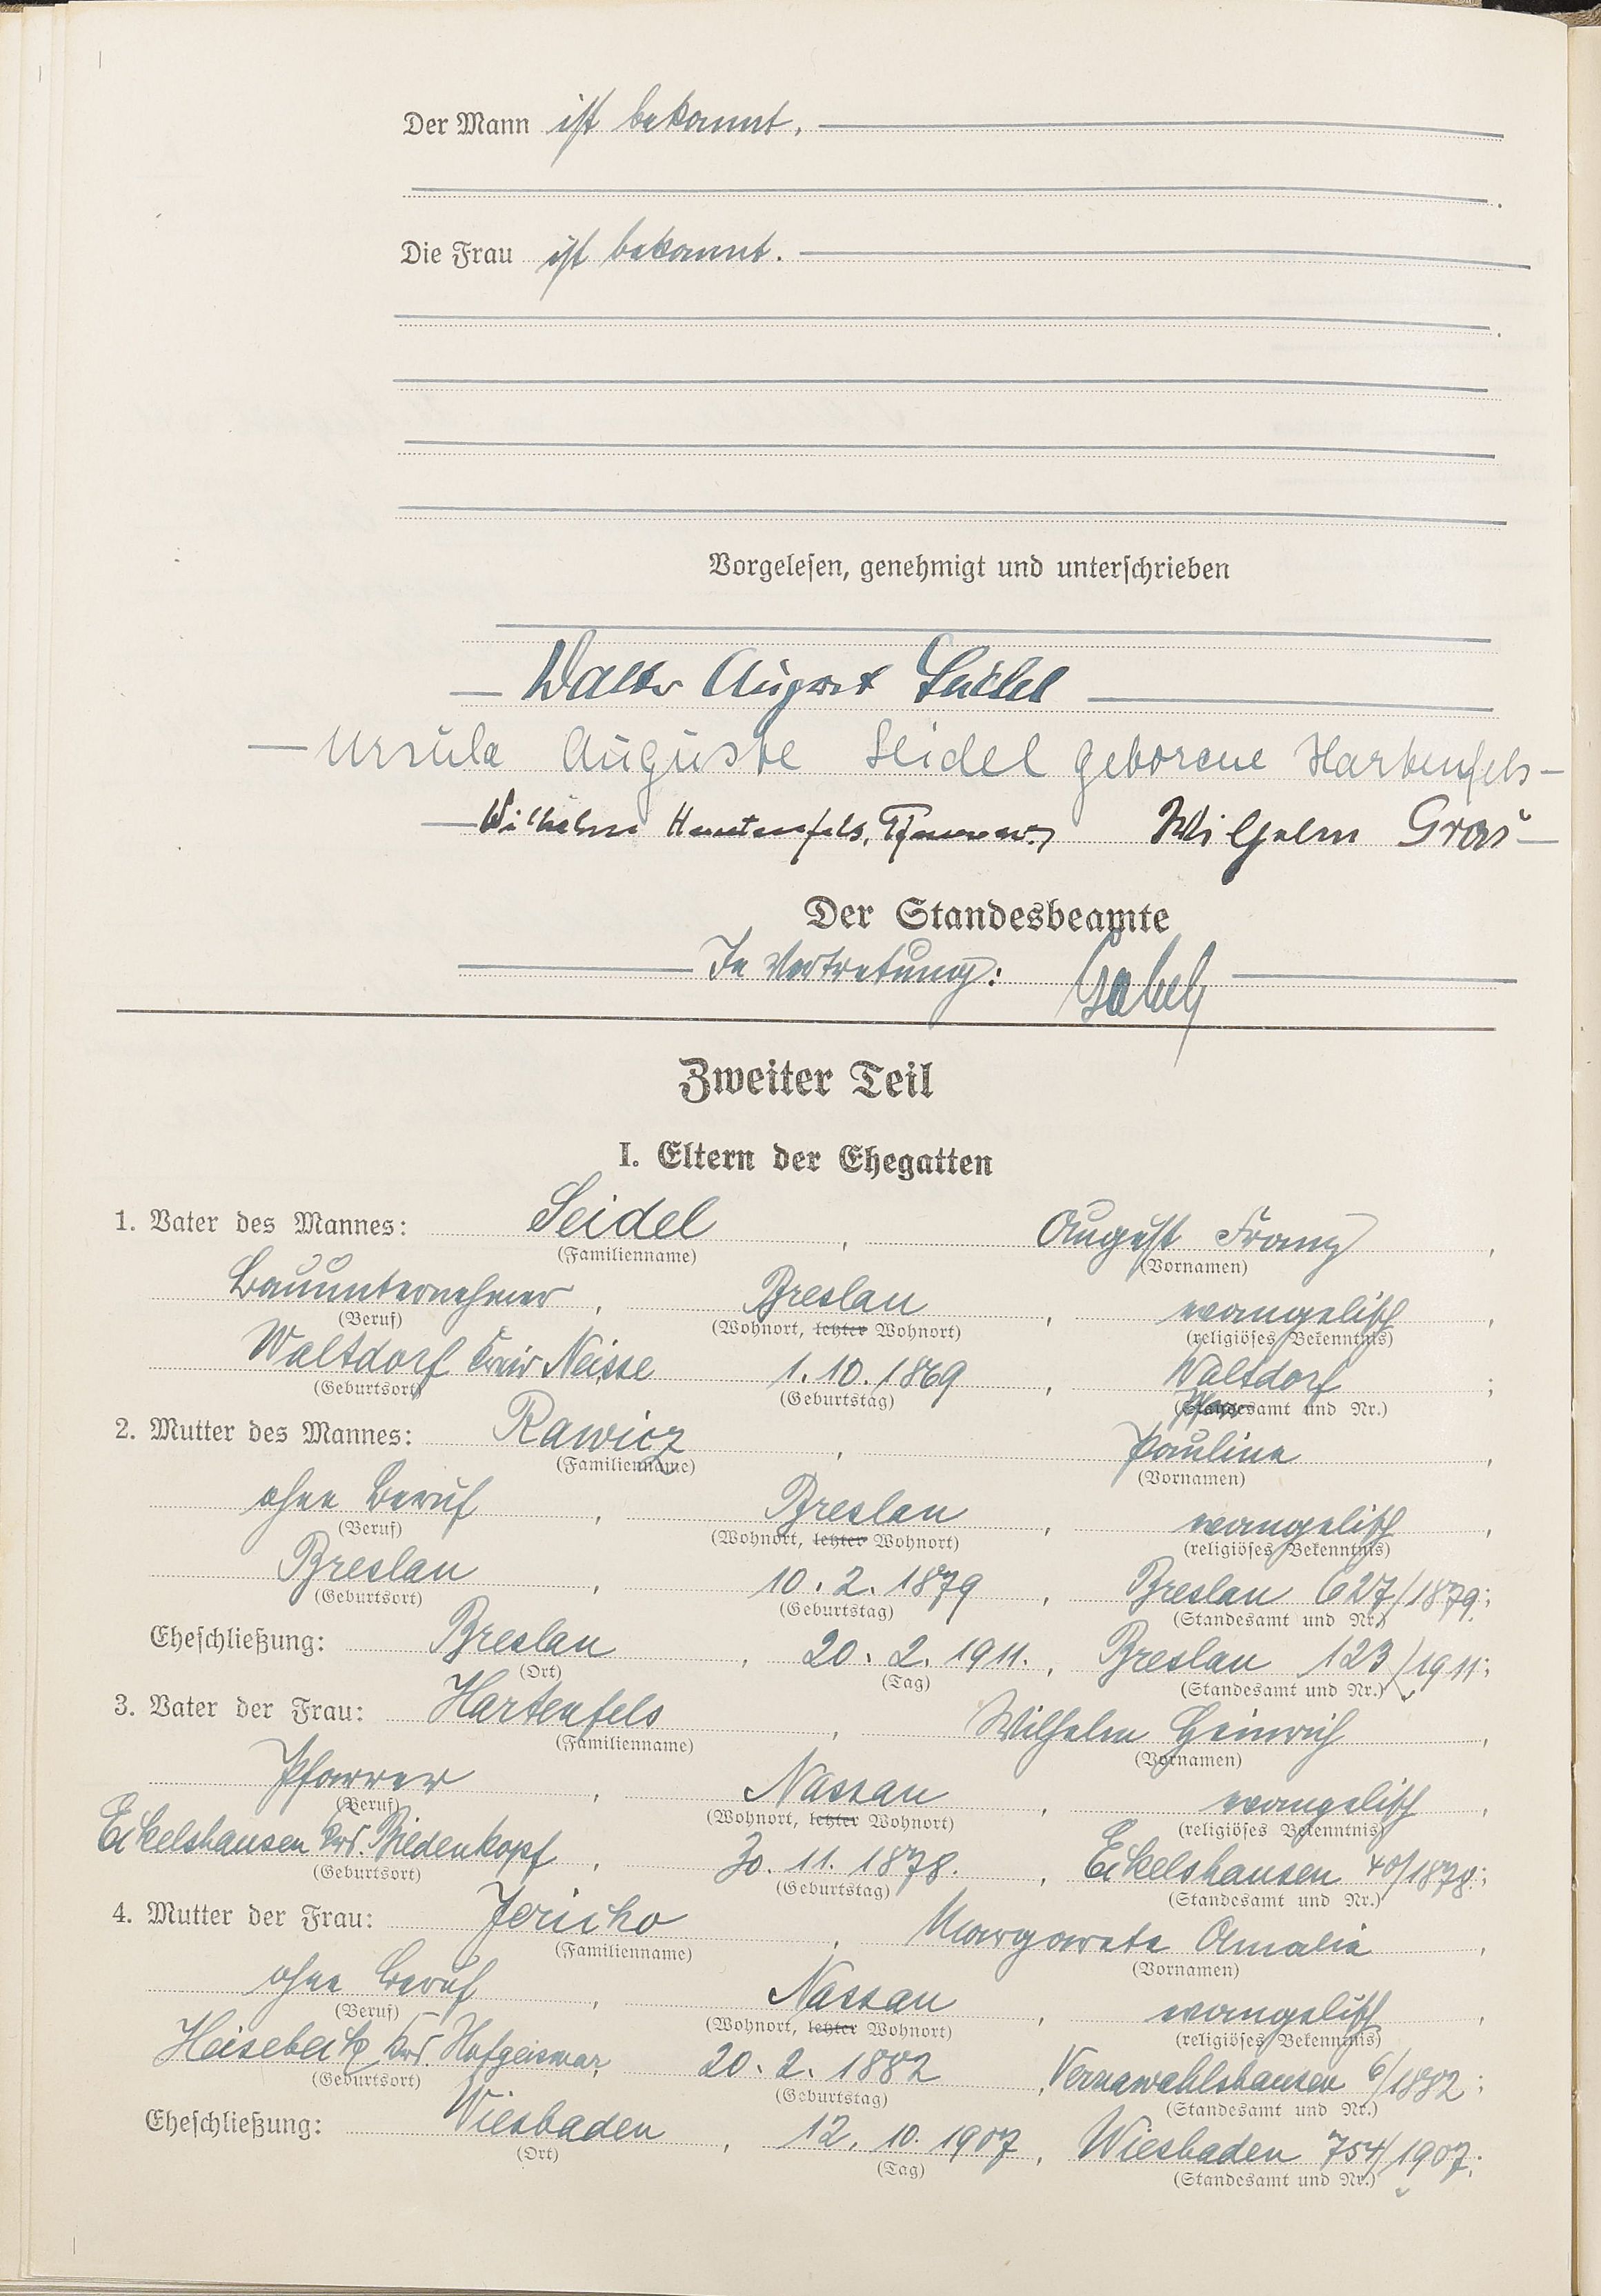 Der Mann ist bekannt.
Die Frau ist bekannt.
Vorgelesen, genehmigt und unterschrieben
Walter August Seidel
Ursula Auguste Seidel geborene Hartenfels
Wilhelm Hartenfels, Pfarrer Wilhelm
Der Standesbeamte
In Vertretung:
Zweiter Teil
I. Eltern der Ehegatten
1. Vater des Mannes: Seidel, August Franz,
(Familienname) (Vornamen)
Bauunternehmer, Breslau, evangelisch,
(Beruf) (Wohnort, letzter Wohnort) (religiöses Bekenntnis)
Waltdorf Kreis Neisse 1.10.1869, Waltdorf;
(Geburtsort) (Geburtstag) (Pfarramt und Nr.)
2. Mutter des Mannes: Rawicz, Pauline,
(Familienname) (Vornamen)
ohne Beruf, Breslau, evangelisch,
(Beruf) (Wohnort, letzter Wohnort) (religiöses Bekenntnis)
Breslau, 10.2.1879, Breslau 627/1879;
(Geburtsort) (Geburtstag) (Standesamt und Nr.)
Eheschließung: Breslau, 20.2.1911., Breslau 123/1911;
(Ort) (Tag) (Standesamt und Nr.)
3. Vater der Frau: Hartenfels, Wilhelm Heinrich,
(Familienname) (Vornamen)
Pfarrer, Nassau, evangelisch,
(Beruf) (Wohnort, letzter Wohnort) (religiöses Bekenntnis)
Eckelshausen Krs. Biedenkopf, 30.11.1878., Eckelshausen 40/1878;
(Geburtsort) (Geburtstag) (Standesamt und Nr.)
4. Mutter der Frau: Jericho, Margarete Amalie,
(Familienname) (Vornamen)
ohne Beruf, Nassau, evangelisch,
(Beruf) (Wohnort, letzter Wohnort) (religiöses Bekenntnis)
Heisebeck Krs. Hofgeismar, 20.2.1882, Vernawahlshausen 6/1882;
(Geburtsort) (Geburtstag) (Standesamt und Nr.)
Eheschließung: Wiesbaden, 12.10.1907, Wiesbaden 754/1907;
(Ort) (Tag) (Standesamt und Nr.)